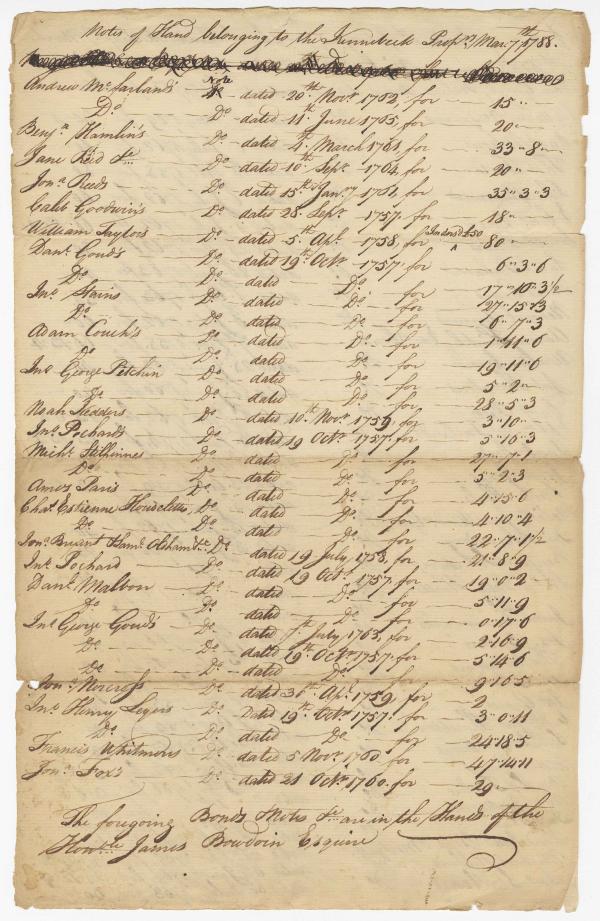 Notes of Hand belonging to the Kennebeck Prop.rs Mar. 7th 1788.
Andrew Mc.farland's Note dated 20th. Nov.r 1762, for 15"
Do. Do. dated 11th. June 1765, for 20"
Benj.a Hamlin's Do. dated 4th. March 1761, for 33"8"
Jane Reid &c. Do. dated 10th Sept.r 1764, for 20"
Jon.a Reeds Do. dated 15th Jan.y 1761, for 35"3"3
Caleb Goodwin's Do. dated 28 Sep.r 1757. for 18"
William Taylors Do. dated 5th. Ap.l 1758, for Indors'd £50 80"
Dan.l Goud's Do. dated 19th Oct.r 1757, for 6"3"6
Do. Do. dated Do. for 17"10"3 1/2
Jn.o Stains Do. dated Do. for 27"15"3
Do. Do. dated Do. for 6"7"3
Adam Couch's Do. dated Do. for 1"11"6
Do. Do. dated Do. for 19"11"6
Jn.o George Pitchin Do. dated Do. for 5"2"
Do. Do. dated Do. for 28"5"3
Noah Kidders Do. dated 10th. Nov.r 1759, for 3"10"
Jn.o Pochard's Do. dated 19 Oct.r 1757. for 5"16"3
Mich.l Do. dated Do. for 27"7"1
Do. Do. dated Do. for 5"2"3
Amos Paris Do. dated Do. for 4"15"6
Cha.s Estienne Houdelette, Do. dated Do. for 4"10"4
Do. Do. dat.d Do. for 22"7"1 1/2
Jon.a Bryant &c. Do. dated 19 July, 1758, for 21"8"9
Jn.o Pochard Do. dated 19 Oct.r 1757, for 19"0"2
Dan.l Malbon Do. dated Do. for 5"11"9
Do. Do. dated Do. for 0"17"6
Jn.o George Goud's Do. dated July 1763, for 2"16"9
Do. Do. dated 19th. Oct.r 1757. for 5"14"6
Do. Do. dated Do. for 9"16"5
Jon.a Norcross Do. dated 30th. Ap.l 1759, for 2
Jn.o Henry Legers Do. Dated 19th. Oct.r 1757. for 3"0"11
Do. Do. dated Do. for 24"18"5
Francis Whitmores Do. dated 5 Nov.r 1760 for 47"14"11
Jon.a Fox's Do. dated 21 Oct.r 1760. for 29"
The foregoing Bonds Notes &c. are in the Hands of the
Hon.ble James Bowdoin Esquire